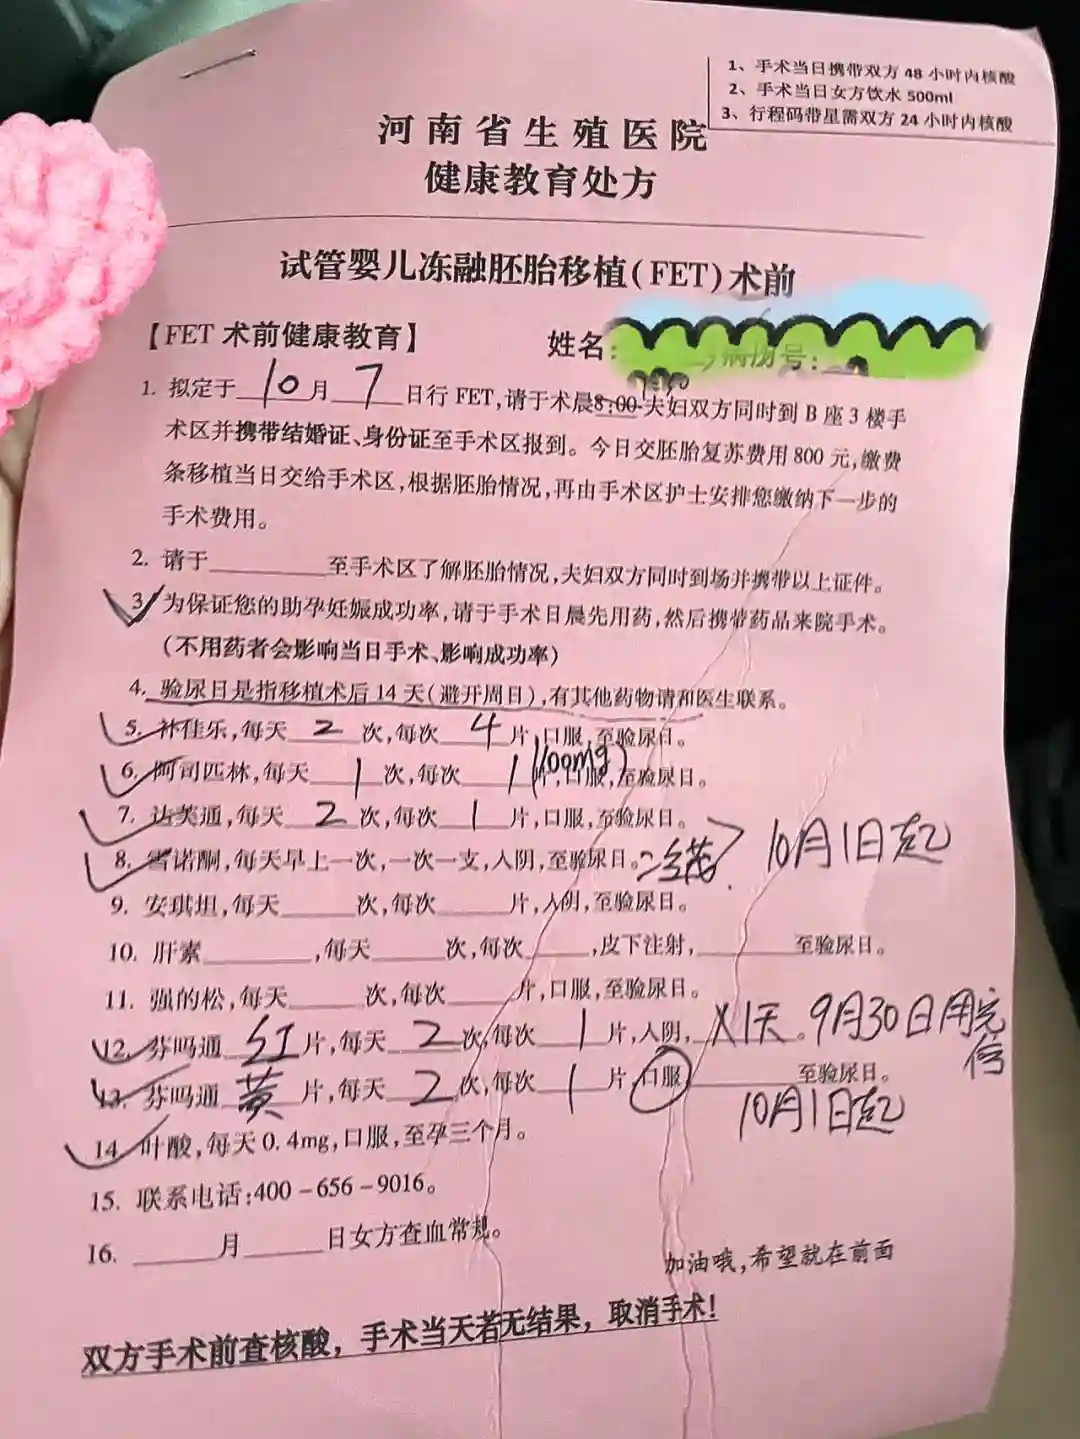 1、手术当日携带双方 48 小时内核酸
2、手术当日女方饮水 500ml
3、行程码带星需双方 24 小时内核酸
河南省生殖医院
健康教育处方
试管婴儿冻融胚胎移植(FET)术前
【FET 术前健康教育】 姓名: 病历号:
1. 拟定于 10 月 7 日行 FET,请于术晨8:00 夫妇双方同时到 B 座 3 楼手
术区并携带结婚证、身份证至手术区报到。今日交胚胎复苏费用 800 元,缴费
条移植当日交给手术区,根据胚胎情况,再由手术区护士安排您缴纳下一步的
手术费用。
2. 请于________至手术区了解胚胎情况,夫妇双方同时到场并携带以上证件。
3. 为保证您的助孕妊娠成功率,请于手术日晨先用药,然后携带药品来院手术。
(不用药者会影响当日手术、影响成功率)
4. 验尿日是指移植术后 14 天(避开周日),有其他药物请和医生联系。
5. 补佳乐,每天 2 次,每次 4 片,口服,至验尿日。
6. 阿司匹林,每天 1 次,每次 1 片(100mg),口服,至验尿日。
7. 达芙通,每天 2 次,每次 1 片,口服,至验尿日。
8. 雪诺酮,每天早上一次,一次一支,入阴,至验尿日。冷藏. 10月1日起
9. 安琪坦,每天____次,每次____片,入阴,至验尿日。
10. 肝素______,每天____次,每次____,皮下注射,______至验尿日。
11. 强的松,每天____次,每次____片,口服,至验尿日。
12. 芬吗通 红 片,每天 2 次,每次 1 片,入阴, X1天。9月30日用完停
13. 芬吗通 黄 片,每天 2 次,每次 1 片,口服______至验尿日。
10月1日起
14. 叶酸,每天 0.4mg,口服,至孕三个月。
15. 联系电话:400-656-9016。
16. ____月____日女方查血常规。
加油哦,希望就在前面
双方手术前查核酸，手术当天若无结果，取消手术!